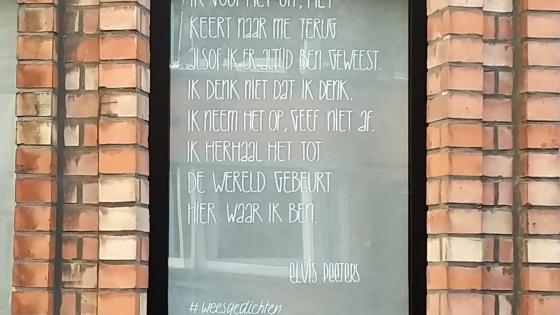 IK VOOR HET UIT, HET
KEERT NAAR ME TERUG
ALSOF IK ER ALTIJD BEN GEWEEST.
IK DENK NIET DAT IK DENK.
IK NEEM HET OP, GEEF NIET AF.
IK HERHAAL HET TOT
DE WERELD GEBEURT
HIER WAAR IK BEN.
ELVIS PEETERS
#weesgedichten